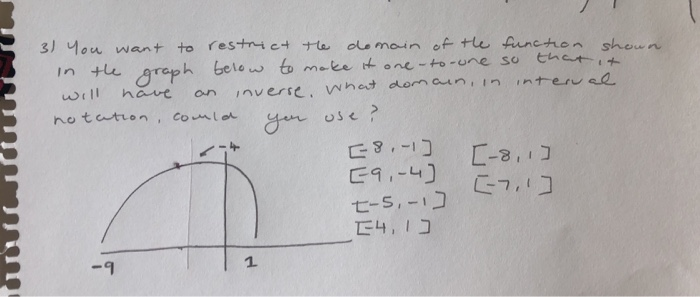 3) You want to restrict the domain of the function shown
in the graph below to make it one-to-one so that it
will have an inverse. What domain, in interval
notation, could you use?
[-8,-1] [-8,1]
[-9,-4] [-7,1]
[-5,-1]
[-4,1]
-4
-9 1